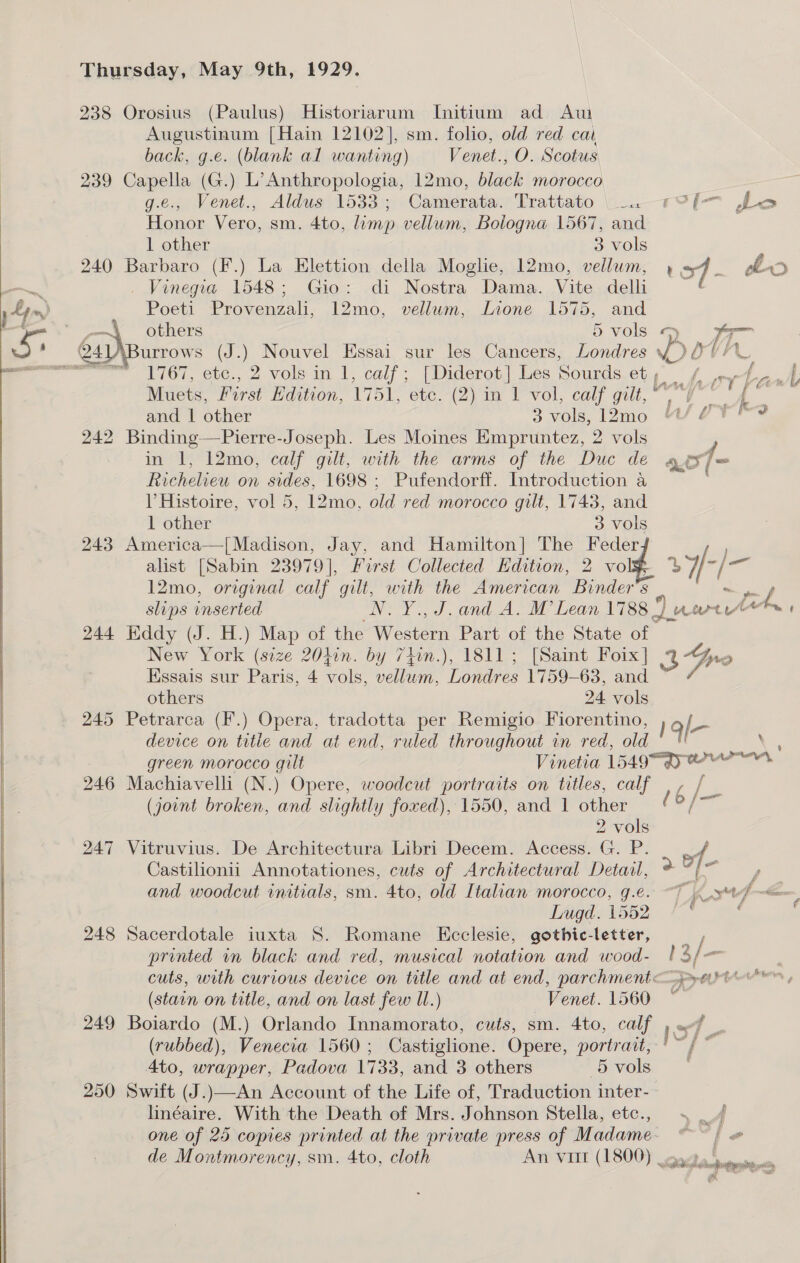 Thursday, May 9th, 1929.
238 Orosius (Paulus) Historiarum Initium ad Au
Augustinum [Hain 12102], sm. folio, old red ca
back, g.e. (blank a1 wanting) Venet., O. Scotus
239 Capella (G.) L'Anthropologia, 12mo, black morocco
g.e., Venet., Aldus 1533; Camerata. Trattato
Honor Vero, sm. 4to, limp vellum, Bologna 1567, and
1 other 3 vols
240 Barbaro (F.) La Elettion della Moglie, 12mo, vellum,
Vinegia 1548; Gio: di Nostra Dama. Vite delli
Poeti Provenzali, 12mo, vellum, Lione 1575, and
others 5 vols
241 Burrows (J.) Nouvel Essai sur les Cancers, Londres
1767, etc., 2 vols in 1, calf; [Diderot] Les Sourds et
Muets, First Edition, 1751, etc. (2) in 1 vol, calf gilt,
and 1 other 3 vols, 12mo
242 Binding—Pierre-Joseph. Les Moines Empruntez, 2 vols
in 1, 12mo, calf gilt, with the arms of the Duc de
Richelieu on sides, 1698; Pufendorff. Introduction à
l'Histoire, vol 5, 12mo, old red morocco gilt, 1743, and
1 other 3 vols
243 America—[Madison, Jay, and Hamilton] The Feder
alist [Sabin 23979], First Collected Edition, 2 vols
12mo, original calf gilt, with the American Binder's
slips inserted N. Y., J. and A. M'Lean 1788
244 Eddy (J. H.) Map of the Western Part of the State of
New York (size 20½in. by 7½in.), 1811; [Saint Foix]
Essais sur Paris, 4 vols, vellum, Londres 1759–63, and
others 24 vols
245 Petrarca (F.) Opera, tradotta per Remigio Fiorentino, 19/-
device on title and at end, ruled throughout in red, old
green morocco gilt Vinetia 1549
246 Machiavelli (N.) Opere, woodcut portraits on titles, calf 16/-
(joint broken, and slightly foxed), 1550, and 1 other
2 vols
247 Vitruvius. De Architectura Libri Decem. Access. G. P.
Castilionii Annotationes, cuts of Architectural Detail,
and woodcut initials, sm. 4to, old Italian morocco, g.e.
Lugd. 1552
248 Sacerdotale iuxta S. Romane Ecclesie, gothic-letter,
printed in black and red, musical notation and wood- 13/-
cuts, with curious device on title and at end, parchment
(stain on title, and on last few ll.) Venet. 1560
249 Boiardo (M.) Orlando Innamorato, cuts, sm. 4to, calf
(rubbed), Venecia 1560; Castiglione. Opere, portrait,
4to, wrapper, Padova 1733, and 3 others 5 vols
250 Swift (J.)—An Account of the Life of, Traduction inter-
linéaire. With the Death of Mrs. Johnson Stella, etc.,
one of 25 copies printed at the private press of Madame
de Montmorency, sm. 4to, cloth An VIII (1800)